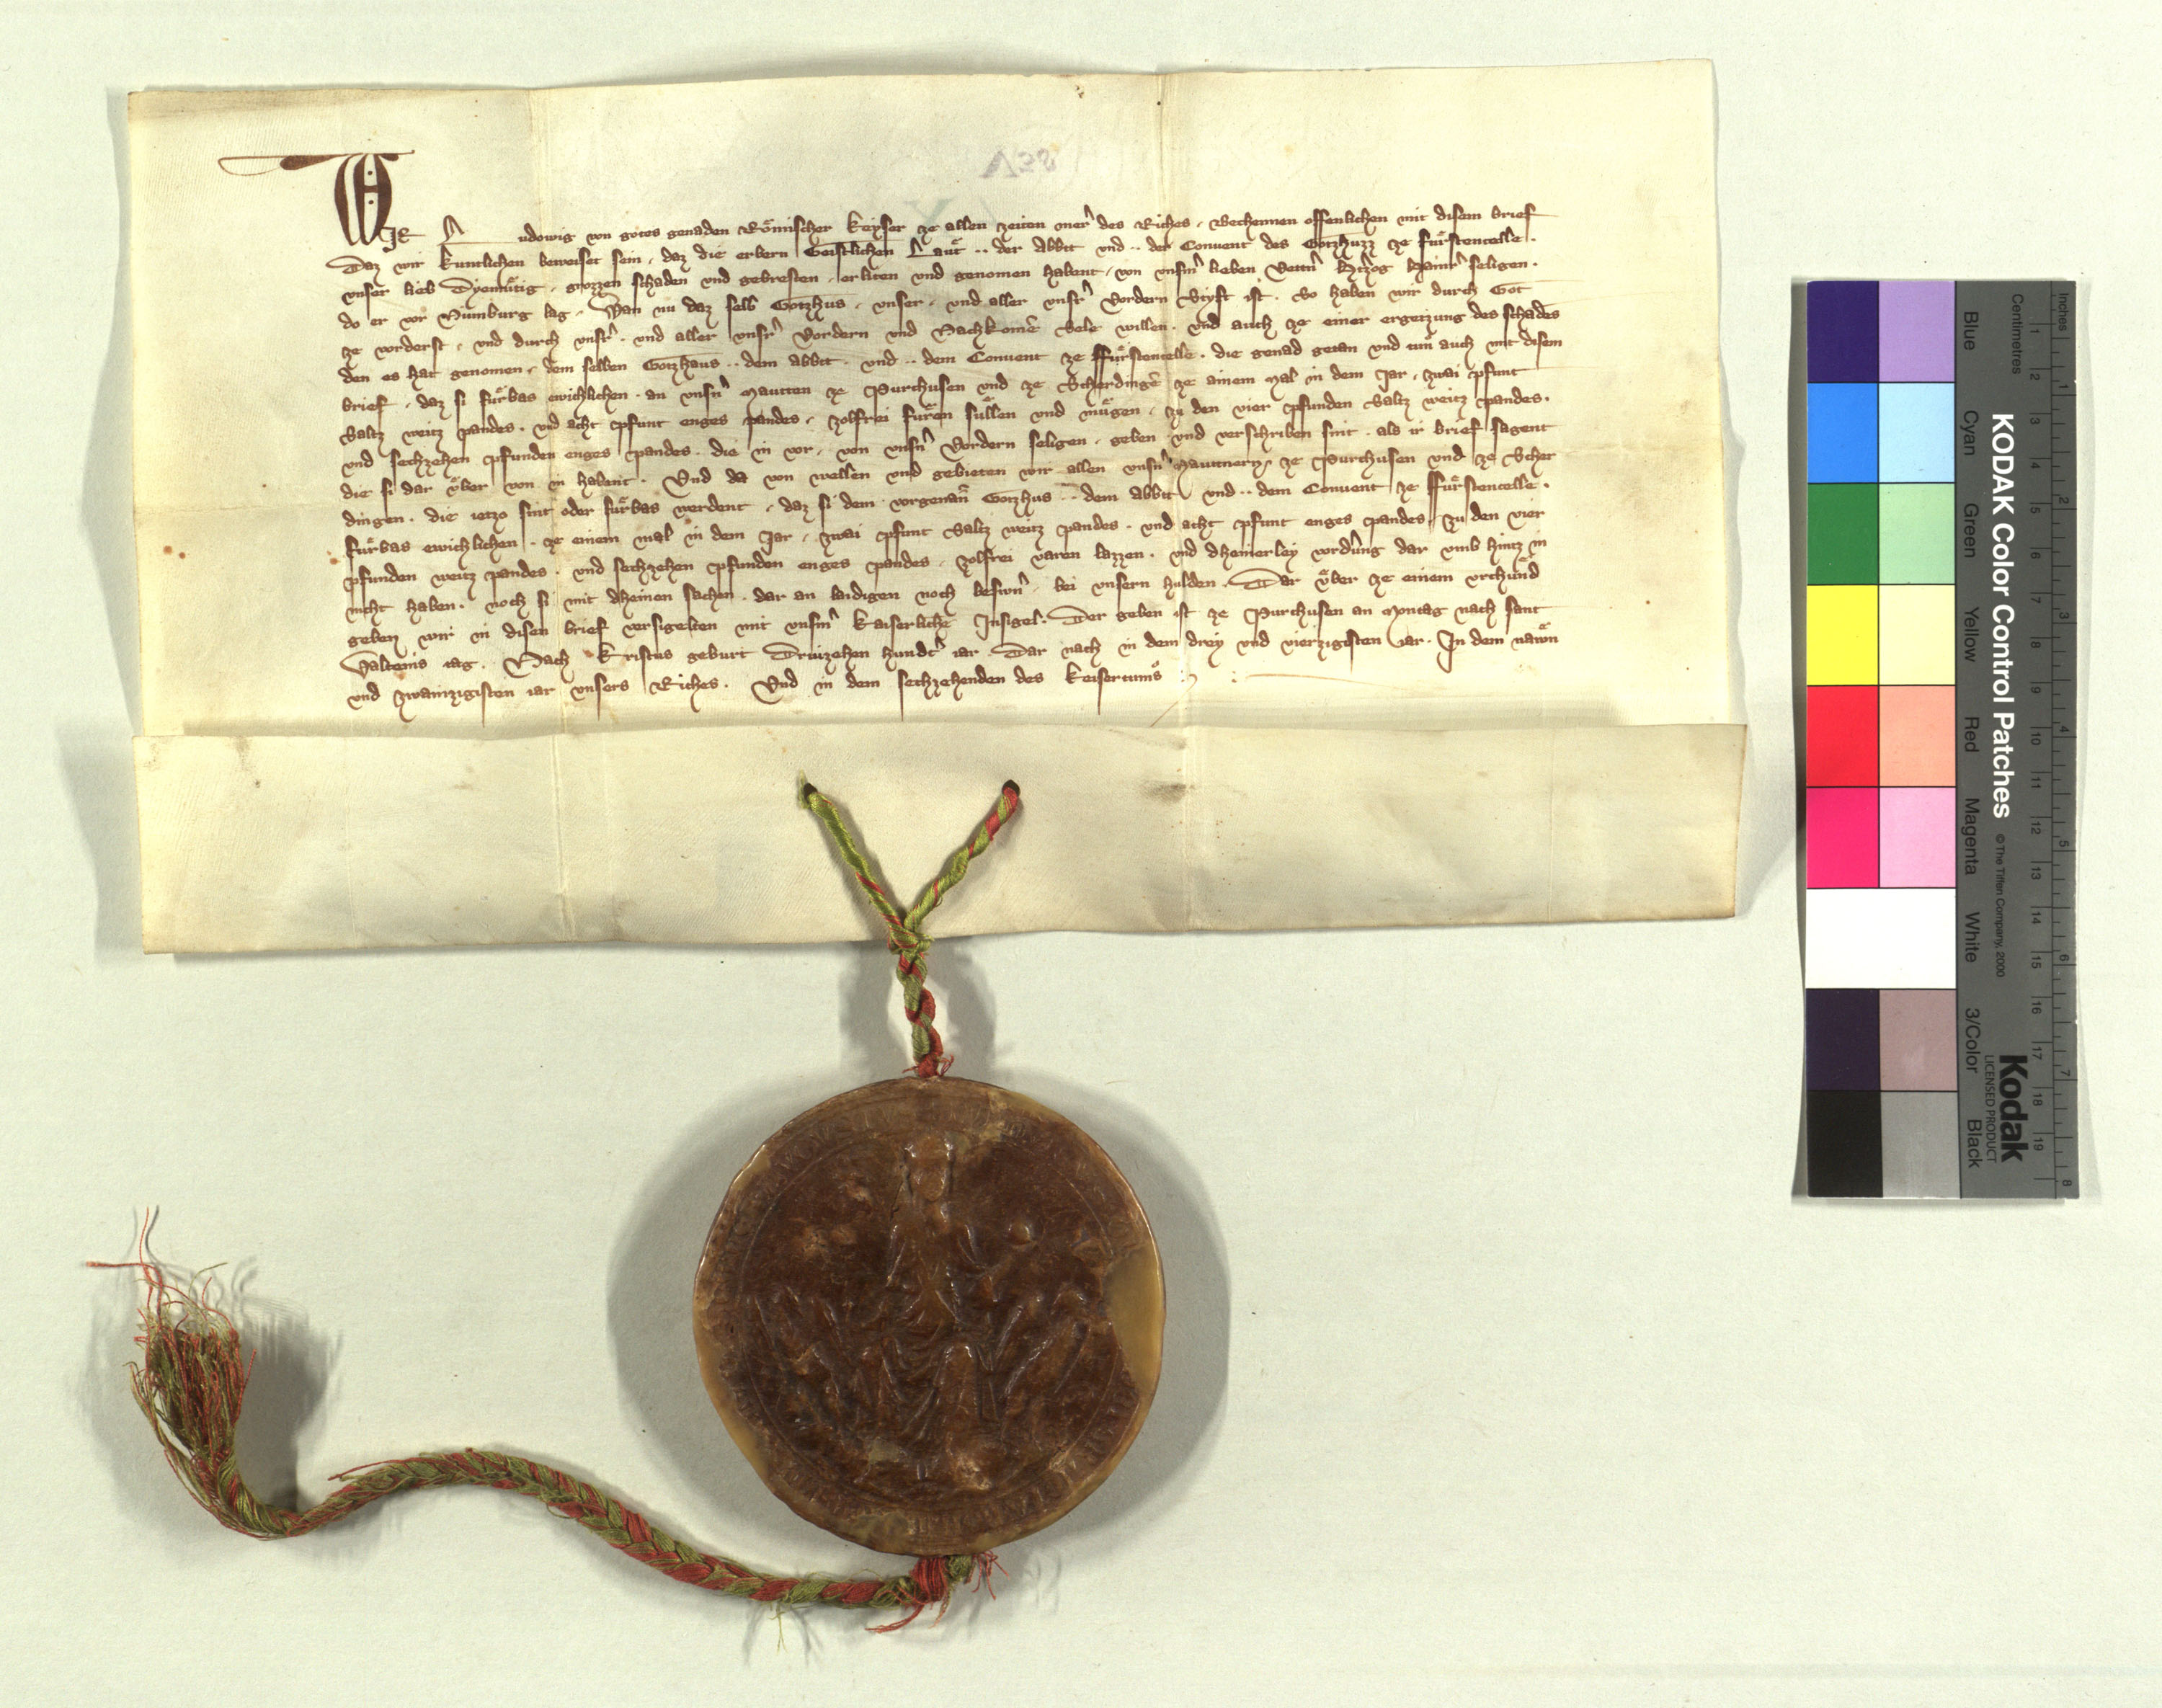 WIR Ludowig von gotes genaden Römischer Keyser ze allen zeiten merer des Riches. Bechennen offenlichen mit disem brief
Daz wir kuntlichen beweiset sein, daz die erbern Geistlichen Laüt .. der Abbt und .. der Convent des Gotzhuzz ze Fürstencelle.
unser lieb Dyemütig, grozzen schaden und gebresten, erliten und genomen habent, von unserm lieben Vettern Hertzog Hainr seligen.
do er vor Numburg lag. Wan nu daz selb Gotzhus, unser, und aller unserr Vordern Styft ist. So haben wir durch Got
ze vorderst, und durch unserr, und aller unserr Vordern und Nachkomen Sele willen. und auch ze einer ergetzung des schades
den es hat genomen, dem selben Gotzhaus .. dem abbt. und .. dem Convent ze Ffürstencelle. die genad getan und tun auch mit disem
brief, daz si fürbas ewichlichen. an unsern Mautten ze Purchusen und ze Scherdinge ze ainem Mal in dem Jar, zwai pfunt
Saltz weitz pandes. und acht pfunt enges pandes, zolfrei füren süllen und mügen, zu den vier pfunden Saltz weitz pandes.
und sechzehen pfunden enges pandes. die in vor, von unsern Vordern seligen, geben und verschriben sint. als ir brief sagent
die si dar über von in habent. Und da von wellen und gebieten wir allen unsern Mauttnern, ze Purchusen und ze Scher
dingen. die ietzo sint oder fürbas werdent, daz si dem vorgenan Gotzhus .. dem abbt und .. dem Convent ze Ffürstencelle.
fürbas ewichlichen. ze einem mal in dem Jar, zwai pfunt Saltz weitz pandes. und acht pfunt enges pandes, zu den vier
pfunden weitz pandes. und sechzehen pfunden enges pandes, zolfrei varen lazzen. und dheinerley vordrung dar umb hintz in
nicht haben. noch si mit dheinen sachen. dar an laidigen noch beswern, bei unsern hulden. Dar über ze einem urchünd
geben wir in disen brief versigelten mit unserm Kaiserliche Insigel. Der geben ist ze Purchusen an Montag nach sant
Valteins tag. Nach Kristus geburt Driuzehen hundert iar. Dar nach in dem drey und vierzigisten iar. In dem naun
und zwainzigisten iar unsers Riches. Und in dem sechzehenden des keisertums
KODAK Color Control Patches
© The Tiffen Company, 2000
Kodak
LICENSED PRODUCT
Inches
1 2 3 4 5 6 7 8
Centimetres
1 2 3 4 5 6 7 8 9 10 11 12 13 14 15 16 17 18 19
Blue Cyan Green Yellow Red Magenta White 3/Color Black